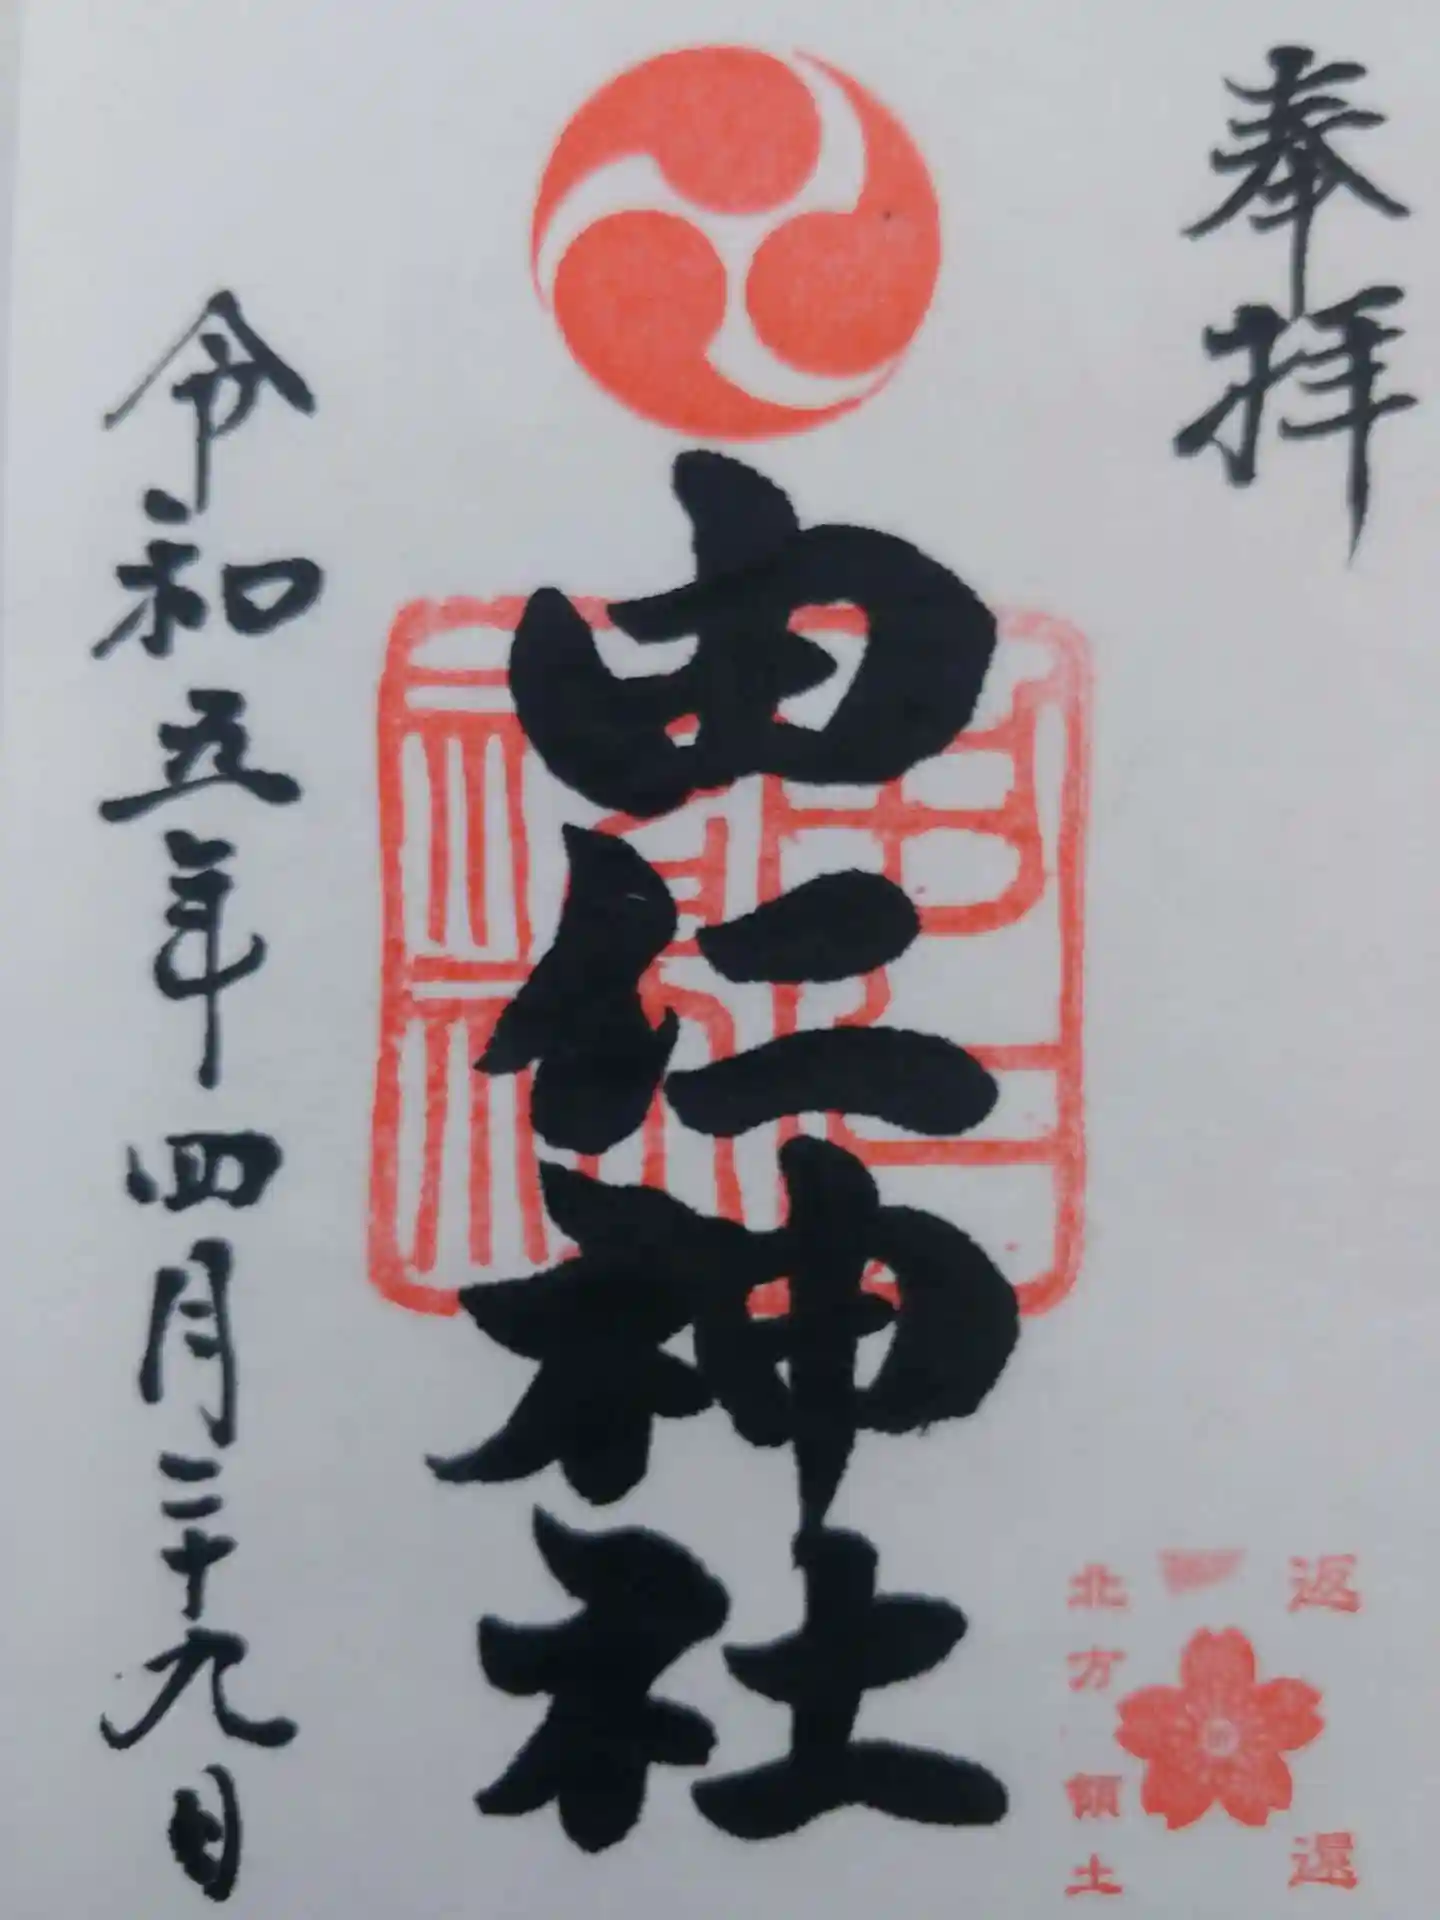 奉拝
由仁神社
令和五年四月二十九日
返還
北方領土